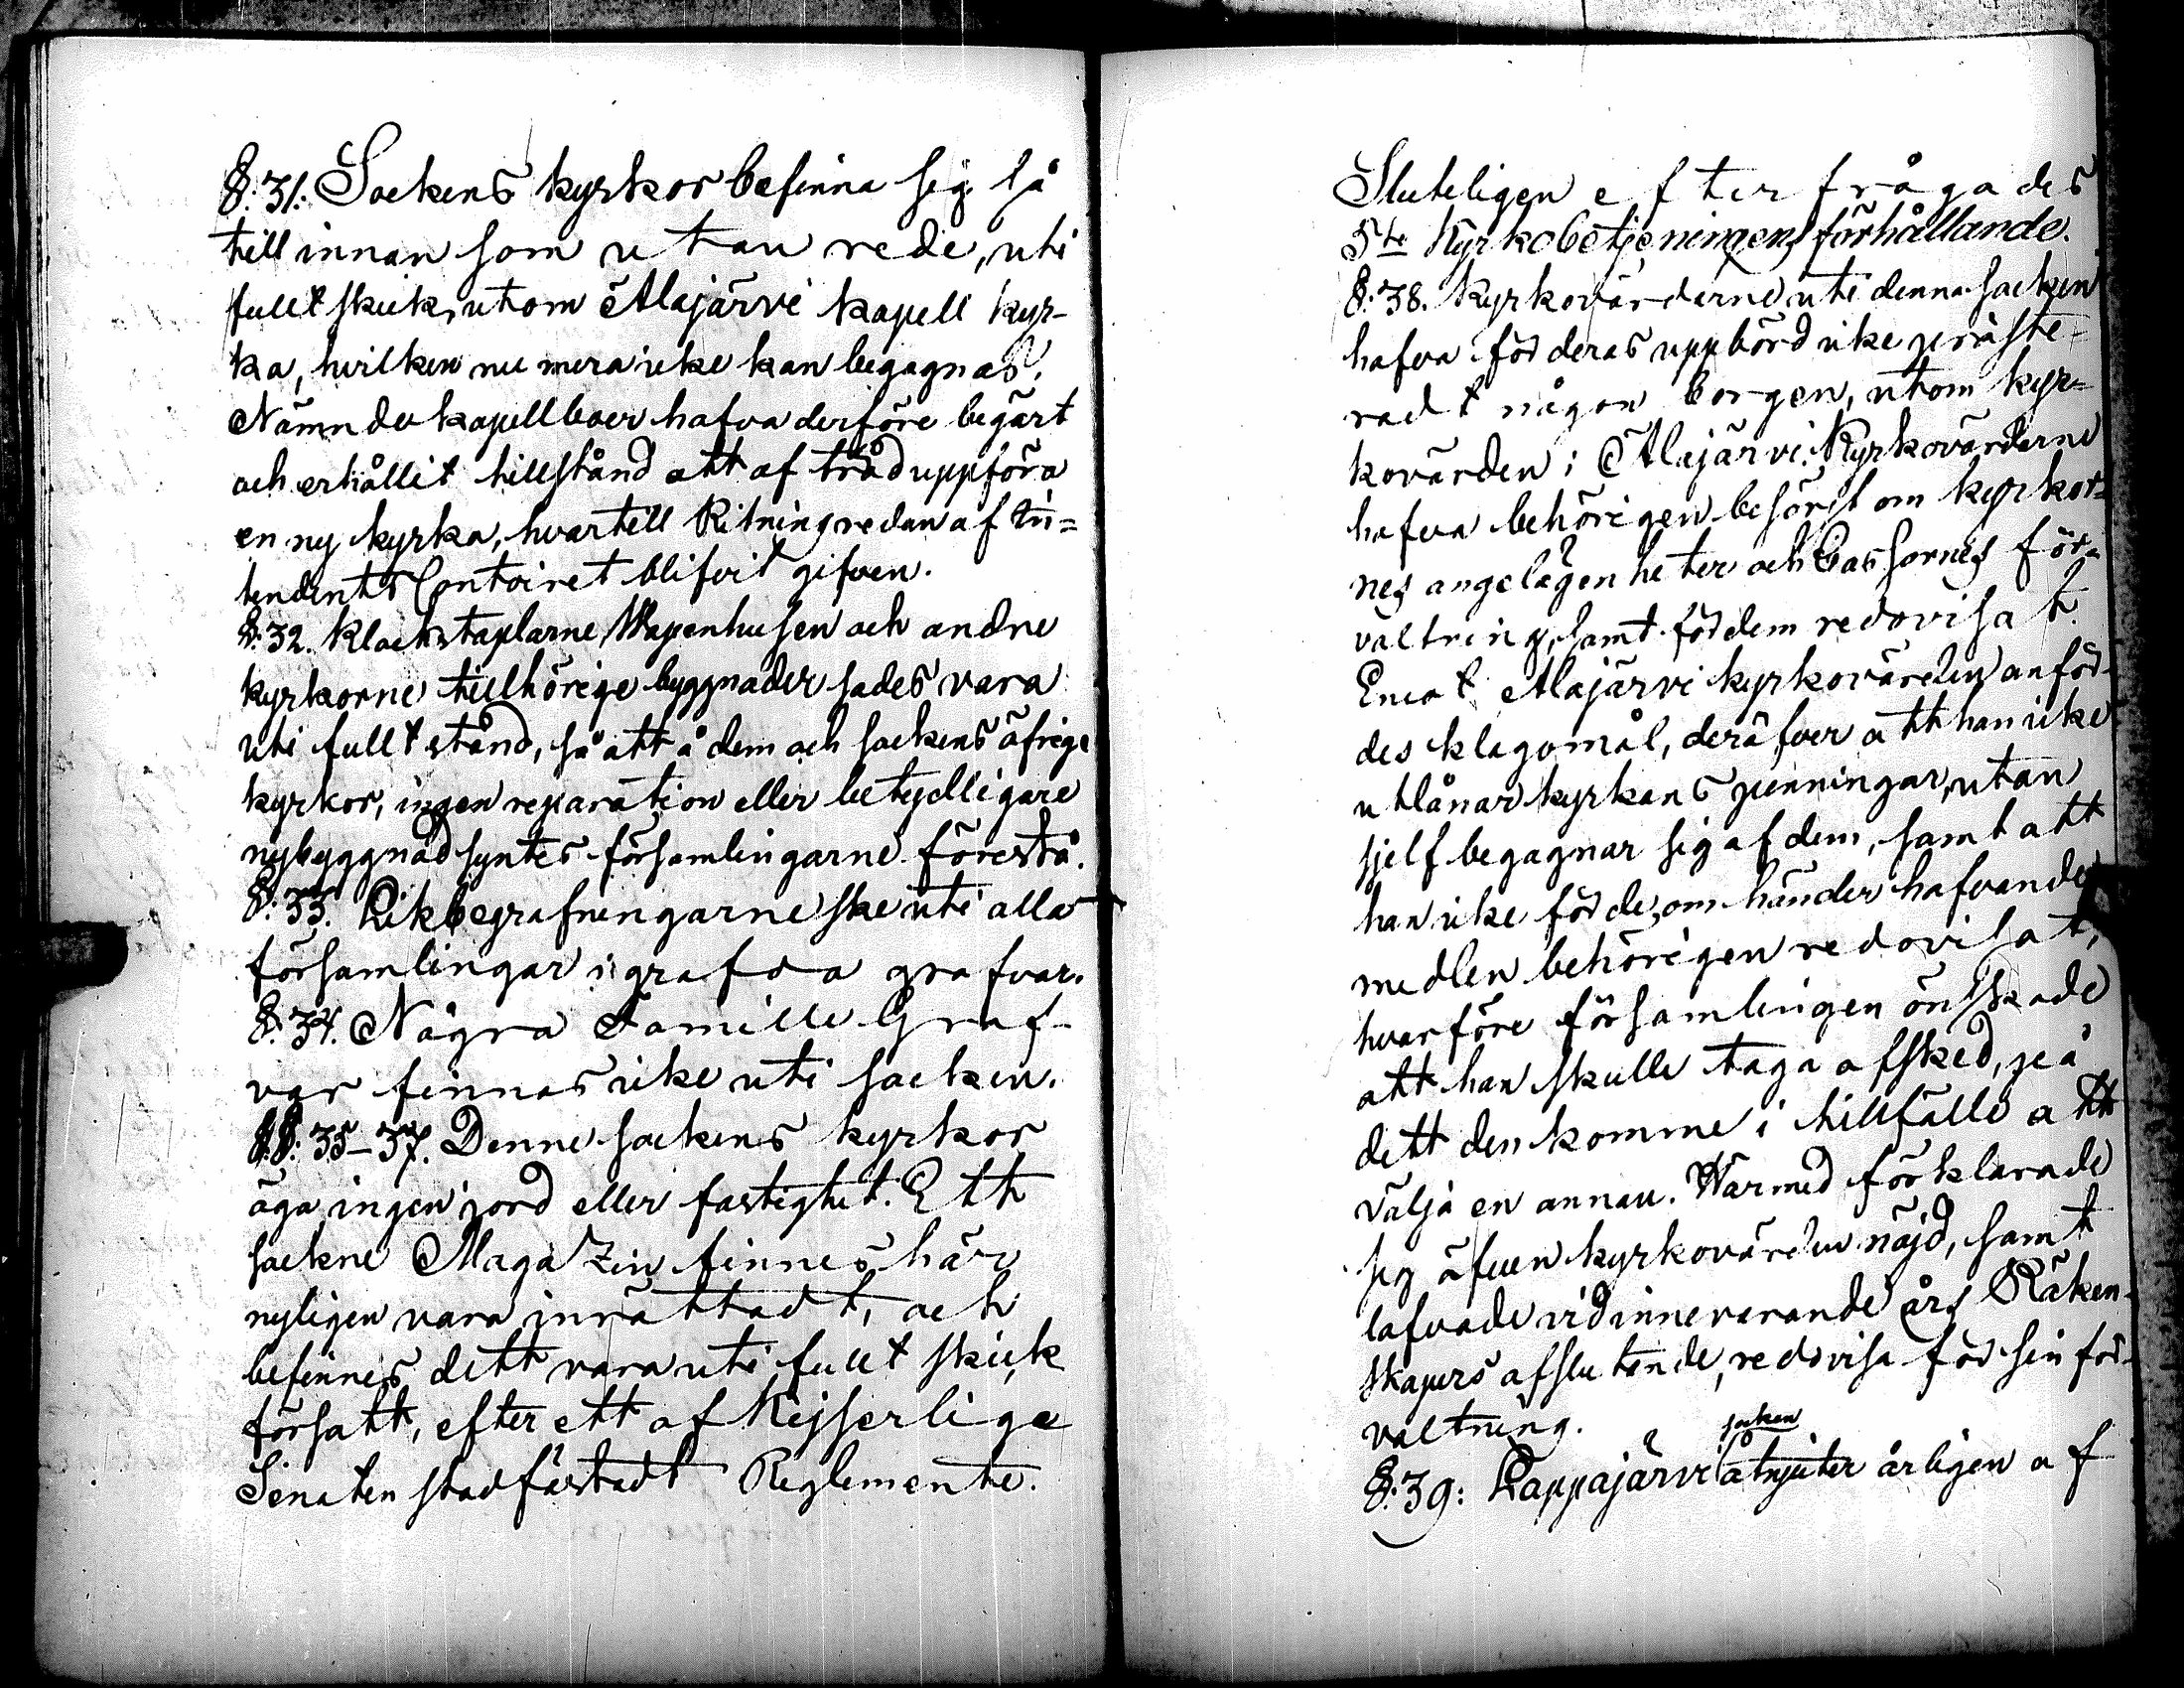 §. 31. Sockens kyrkor befinna sig så
till innan som utan rede, uti
fullt skick, utom Alajärvi kapell kyr-
ka, hvilken nu mera icke kan begagnas.
Nämnde kapellboer hafva derföre begärt
och erhållit tillstånd att af träd uppföra
en ny kyrka, hvartill Ritning redan af In=
tendents Contoiret blifvit gifven.
§. 32. Klockstaplarne, Wapenhusen och andre
kyrkorne tillhörige byggnader sades vara
uti fullt stånd, så att å dem och sockens öfrige
kyrkor, ingen reparation eller betydligare
nybyggnad syntes församlingarne förestå.
§. 33. Likbegrafningarne ske uti alla
församlingar i grafva grafvar.
§. 34. Några Familie Graf-
var finnas icke uti socken.
§§. 35-37. Denne sockens kyrkor
äga ingen jord eller fastighet. Ett
sockne Magazin finnes här
nyligen vara inrättadt, och
befinnes dett vara uti fullt skick
försatt, efter ett af Kejserliga
Senaten stadfästadt Reglemente.
Sluteligen efterfrågades
5te Kyrkobetjeningens förhållande.
§. 38. Kyrkovärderne uti denna socken
hafva för deras uppbörd icke præste=
radt någon borgen, utom kyr=
kovärden i Alajärvi. Kyrkovärderne
hafva behörigen besörjt om kyrkor=
nes angelägenheter och Cassornes för=
valtning, samt för dem redovisat.
Emot Alajärvi kyrkovärden anför-
des klagomål, deröfver att han icke
utlånar kyrkans penningar, utan
sjelf begagnar sig af dem, samt att
han icke för de, om händer hafvande
medlen behörigen redovisat,
hvarföre församlingen önskade
att han skulle taga afsked, på
dett den komme i tillfälle att
välja en annan. Wärmed förklarade
sig äfven kyrkovärden nöjd, samt
lofvade vid innevarande års Räken-
skapers afslutende, redovisa för sin för-
valtning.
socken
§. 39: Lappajärvi åtnjuter årligen af